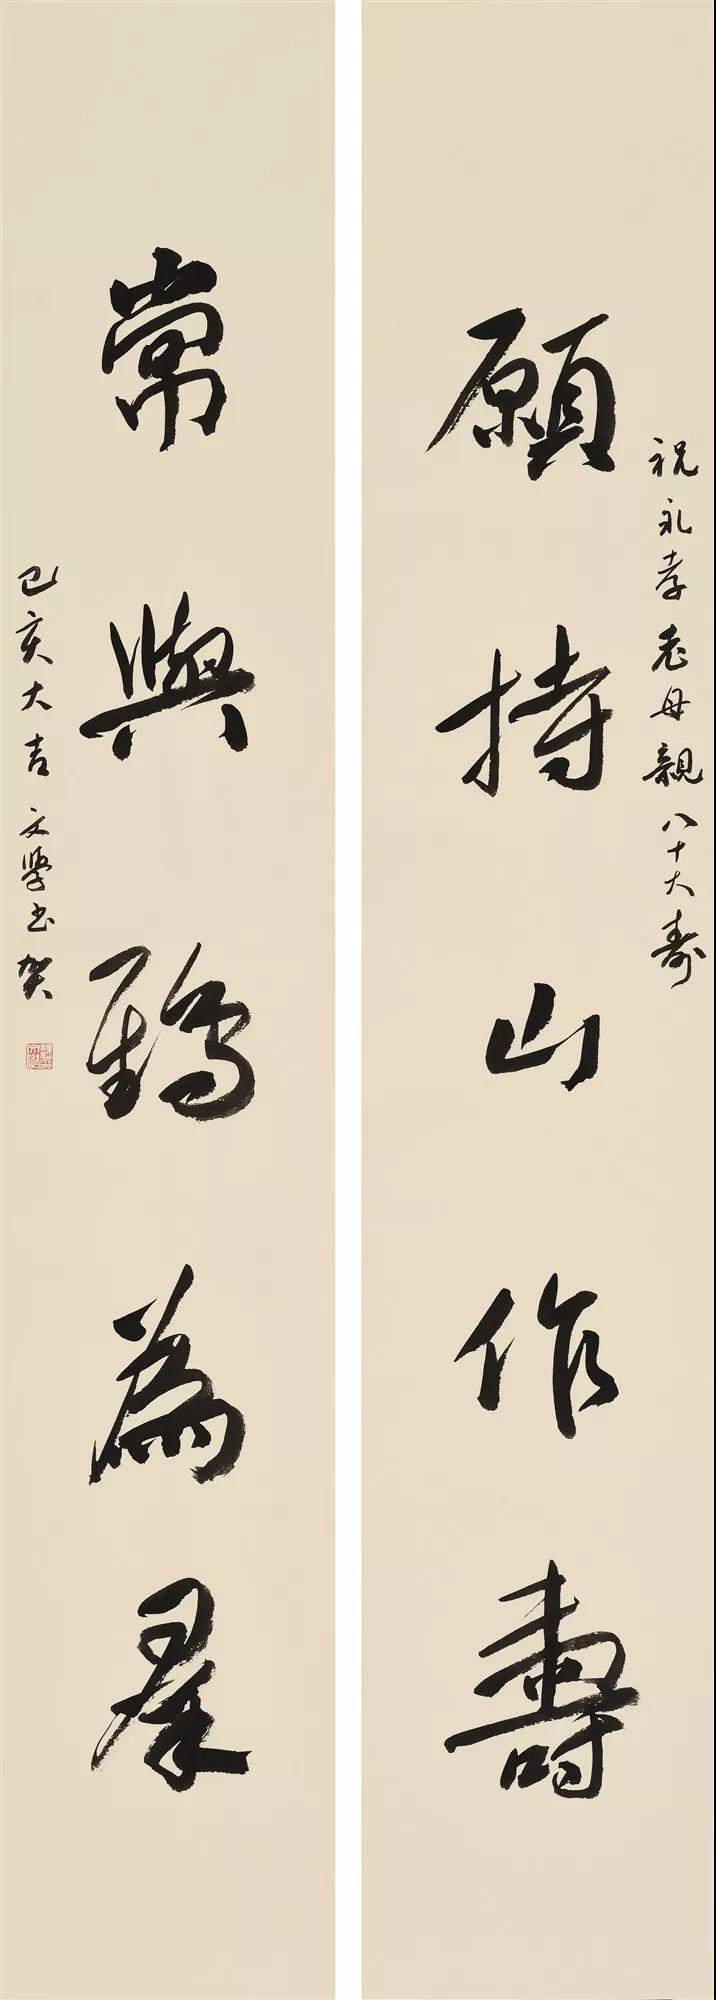 祝礼孝老母親八十大寿
願持山作壽
常與鶴為羣
己亥大吉文學书賀